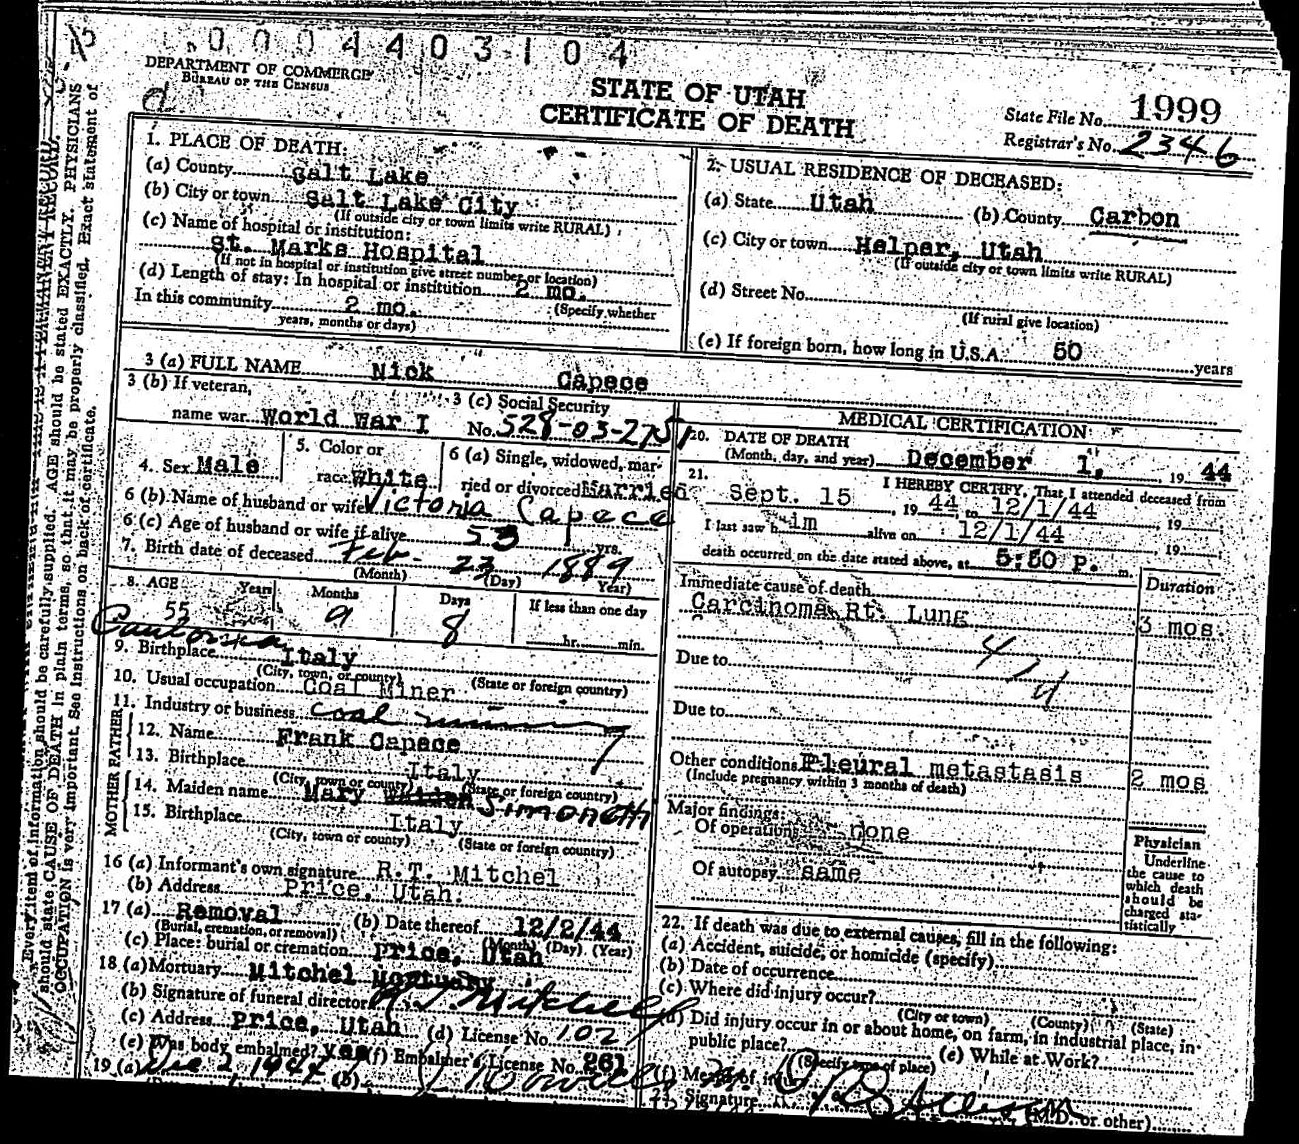 0004403104
DEPARTMENT OF COMMERCE
BUREAU OF THE CENSUS
STATE OF UTAH
CERTIFICATE OF DEATH
State File No. 1999
Registrar's No. 2346
1. PLACE OF DEATH:
(a) County Salt Lake
(b) City or town Salt Lake City
(If outside city or town limits write RURAL)
(c) Name of hospital or institution:
St. Marks Hospital
(If not in hospital or institution give street number or location)
(d) Length of stay: In hospital or institution 2 mo.
(Specify whether
In this community 2 mo.
years, months or days)
2. USUAL RESIDENCE OF DECEASED:
(a) State Utah (b) County Carbon
(c) City or town Helper, Utah
(If outside city or town limits write RURAL)
(d) Street No.
(If rural give location)
(e) If foreign born, how long in U.S.A. 50 years
3 (a) FULL NAME Nick Capece
3 (b) If veteran,
name war World War I
3 (c) Social Security
No. 528-03-2751
4. Sex Male
5. Color or
race White
6 (a) Single, widowed, mar-
ried or divorced Married
6 (b) Name of husband or wife Victoria Capece
6 (c) Age of husband or wife if alive 53 yrs.
7. Birth date of deceased Feb. 23 1889
(Month) (Day) Year)
8. AGE Years Months Days If less than one day
55 9 8 hr. min.
9. Birthplace Italy
(City, town, or county) (State or foreign country)
10. Usual occupation Coal Miner
11. Industry or business coal mining
FATHER
12. Name Frank Capece
13. Birthplace Italy
(City, town or county) (State or foreign country)
MOTHER
14. Maiden name Mary Simonetti
15. Birthplace Italy
(City, town or county) (State or foreign country)
16 (a) Informant's own signature R.T. Mitchel
(b) Address Price, Utah.
17 (a) Removal (b) Date thereof 12/2/44
(Burial, cremation, or removal) (Month) (Day) (Year)
(c) Place: burial or cremation Price, Utah
18 (a) Mortuary Mitchel Mortuary
(b) Signature of funeral director R. T. Mitchell
(c) Address Price, Utah (d) License No. 102
(e) Was body embalmed? yes (f) Embalmer's License No. 261
19 (a) Dec 2, 1944 (b)
MEDICAL CERTIFICATION
20. DATE OF DEATH
(Month, day, and year) December 1, 19 44
21. I HEREBY CERTIFY, That I attended deceased from
Sept. 15, 19 44 to 12/1/44, 19
I last saw h im alive on 12/1/44, 19
death occurred on the date stated above, at 5:50 P. m.
Immediate cause of death Duration
Carcinoma Rt. Lung 3 mos.
Due to
Due to
Other conditions Pleural metastasis 2 mos
(Include pregnancy within 3 months of death)
Major findings:
Of operations none
Of autopsy same
Physician
Underline
the cause to
which death
should be
charged sta-
tistically
22. If death was due to external causes, fill in the following:
(a) Accident, suicide, or homicide (specify)
(b) Date of occurrence
(c) Where did injury occur?
(City or town) (County) (State)
(d) Did injury occur in or about home, on farm, in industrial place, in-
public place? (e) While at Work?
(Specify type of place)
Signature (M.D. or other)
should state CAUSE OF DEATH in plain terms, so that it may be properly classified. Exact statement of
OCCUPATION is very important. See instructions on back of certificate.
Every item of information should be carefully supplied. AGE should be stated EXACTLY. PHYSICIANS